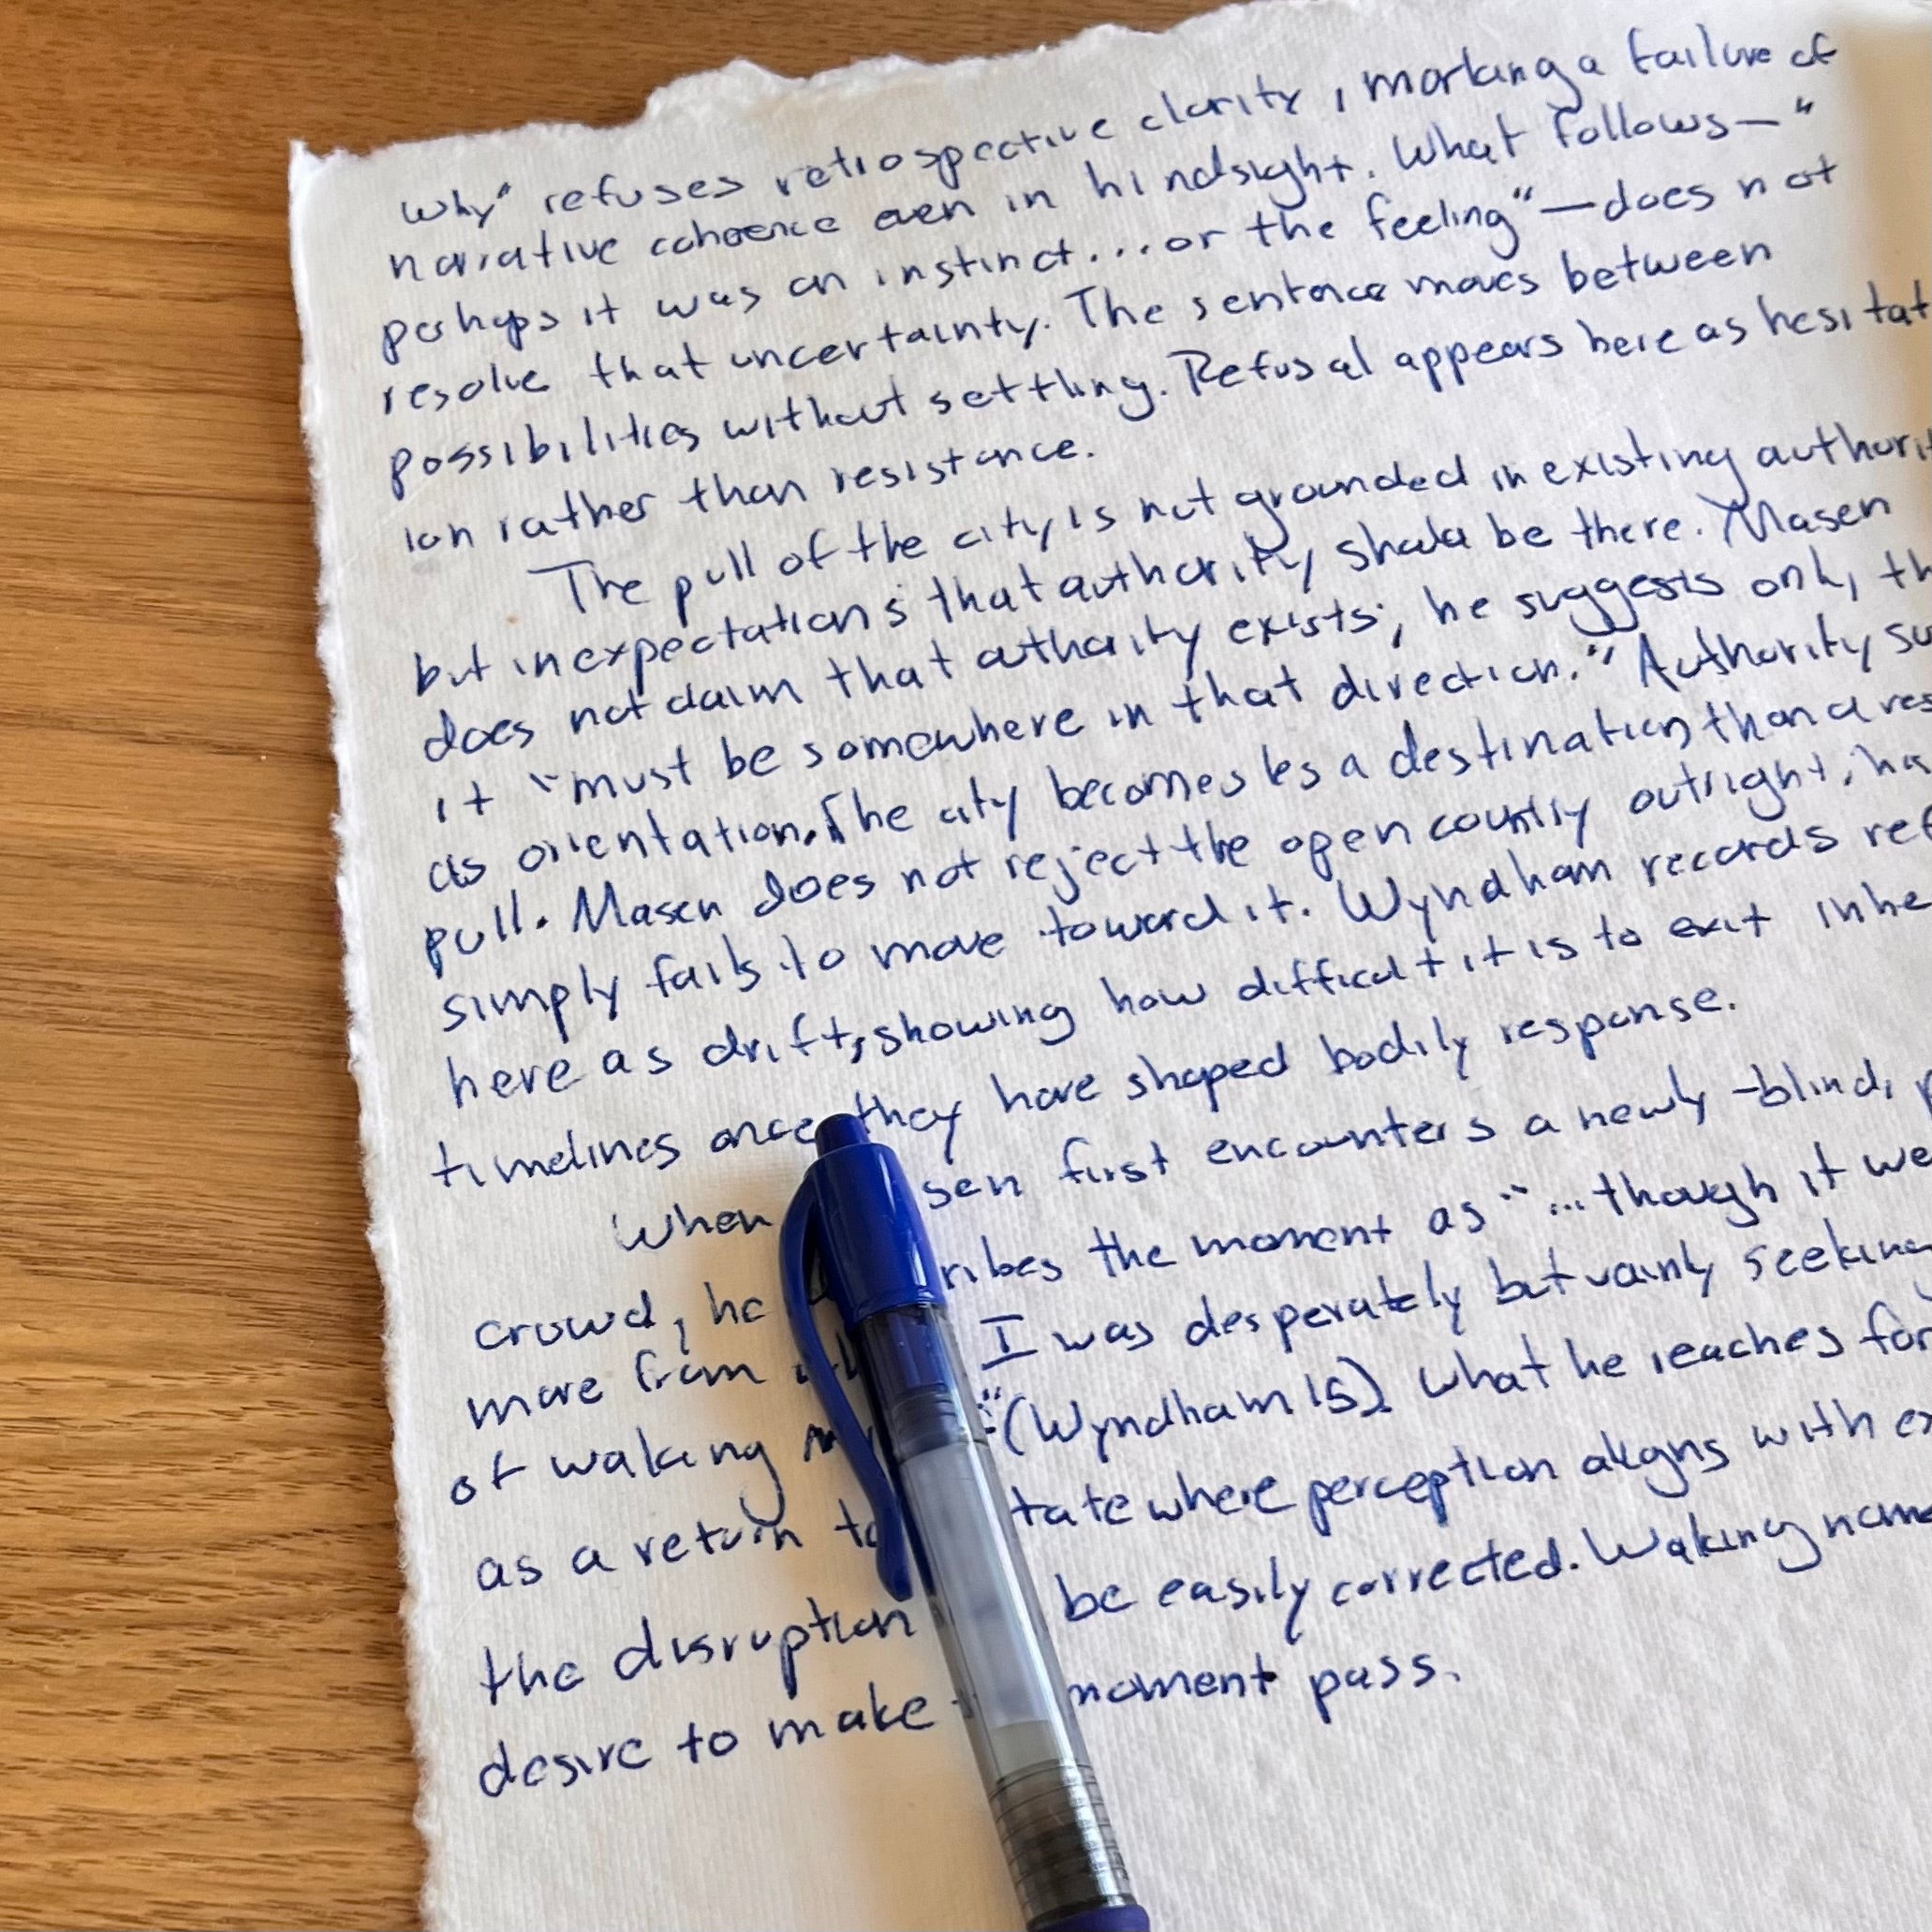 why" refuses retrospective clarity, marking a failure of
narrative coherence even in hindsight. What follows—"
perhaps it was an instinct...or the feeling"—does not
resolve that uncertainty. The sentence moves between
possibilities without settling. Refusal appears here as hesitat
ion rather than resistance.
The pull of the city is not grounded in existing authorit
but in expectations that authority should be there. Masen
does not claim that authority exists; he suggests only, th
it "must be somewhere in that direction." Authority su
as orientation. The city becomes les a destination than a res
pull. Masen does not reject the open country outright, h
simply fails to move toward it. Wyndham records ref
here as drift, showing how difficult it is to exit inhe
timelines once they have shaped bodily response.
When sen first encounters a newly-blind, p
crowd, he ribes the moment as "...though it we
more from I was desperately but vainly seeking
of waking "(Wyndham 15). What he reaches for
as a return to tate where perception aligns with ex
the disruption be easily corrected. Waking name
desire to make moment pass.